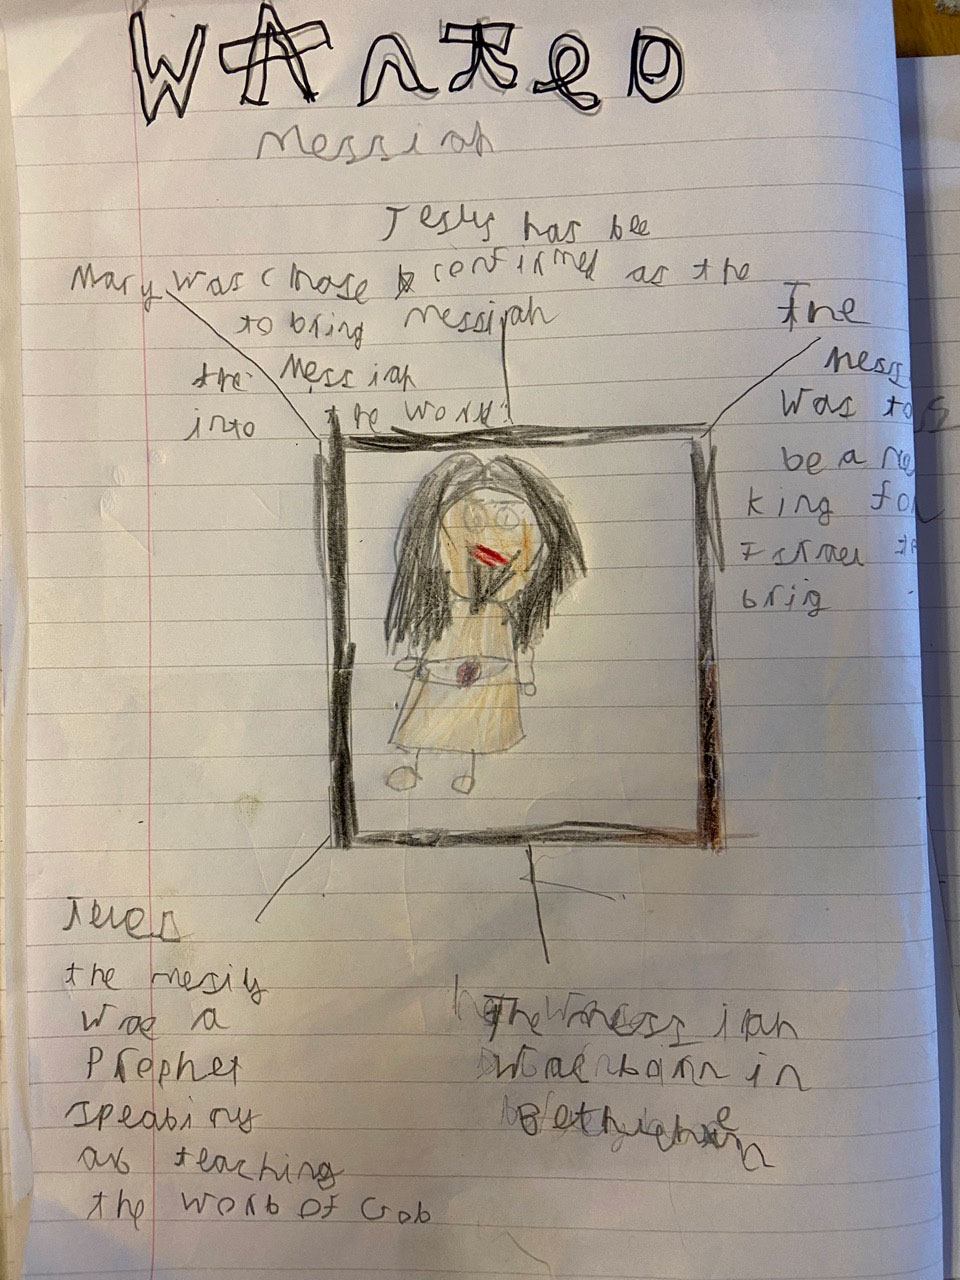 WAnTeD
Messiah
Jesus has bee
confirmed as the
Messijah
Mary was chose
to bring
the Messiah
into the World
The
Mess
Was to
be a ne
king fo
Israel
brig
the
Wae a
Prophet
as teaching
the Worb of Gob
The Messiah
Wae born in